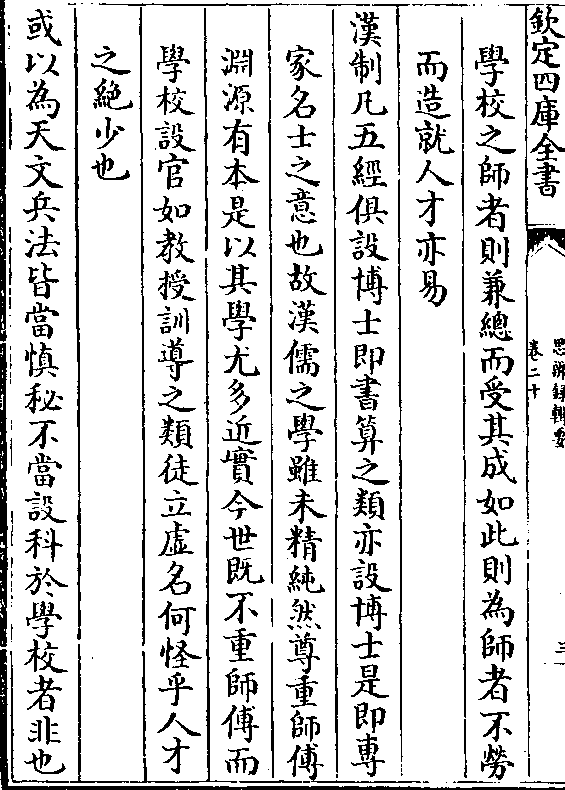 欽定四庫全書
思辨録輯要
卷二十
學校之師者則兼總而受其成如此則為師者不勞
而造就人才亦易
漢制凡五經俱設博士即書算之類亦設博士是即專
家名士之意也故漢儒之學雖未精純然尊重師傅
淵源有本是以其學尤多近實今世既不重師傅而
學校設官如教授訓導之類徒立虛名何怪乎人才
之絕少也
或以為天文兵法皆當慎秘不當設科於學校者非也